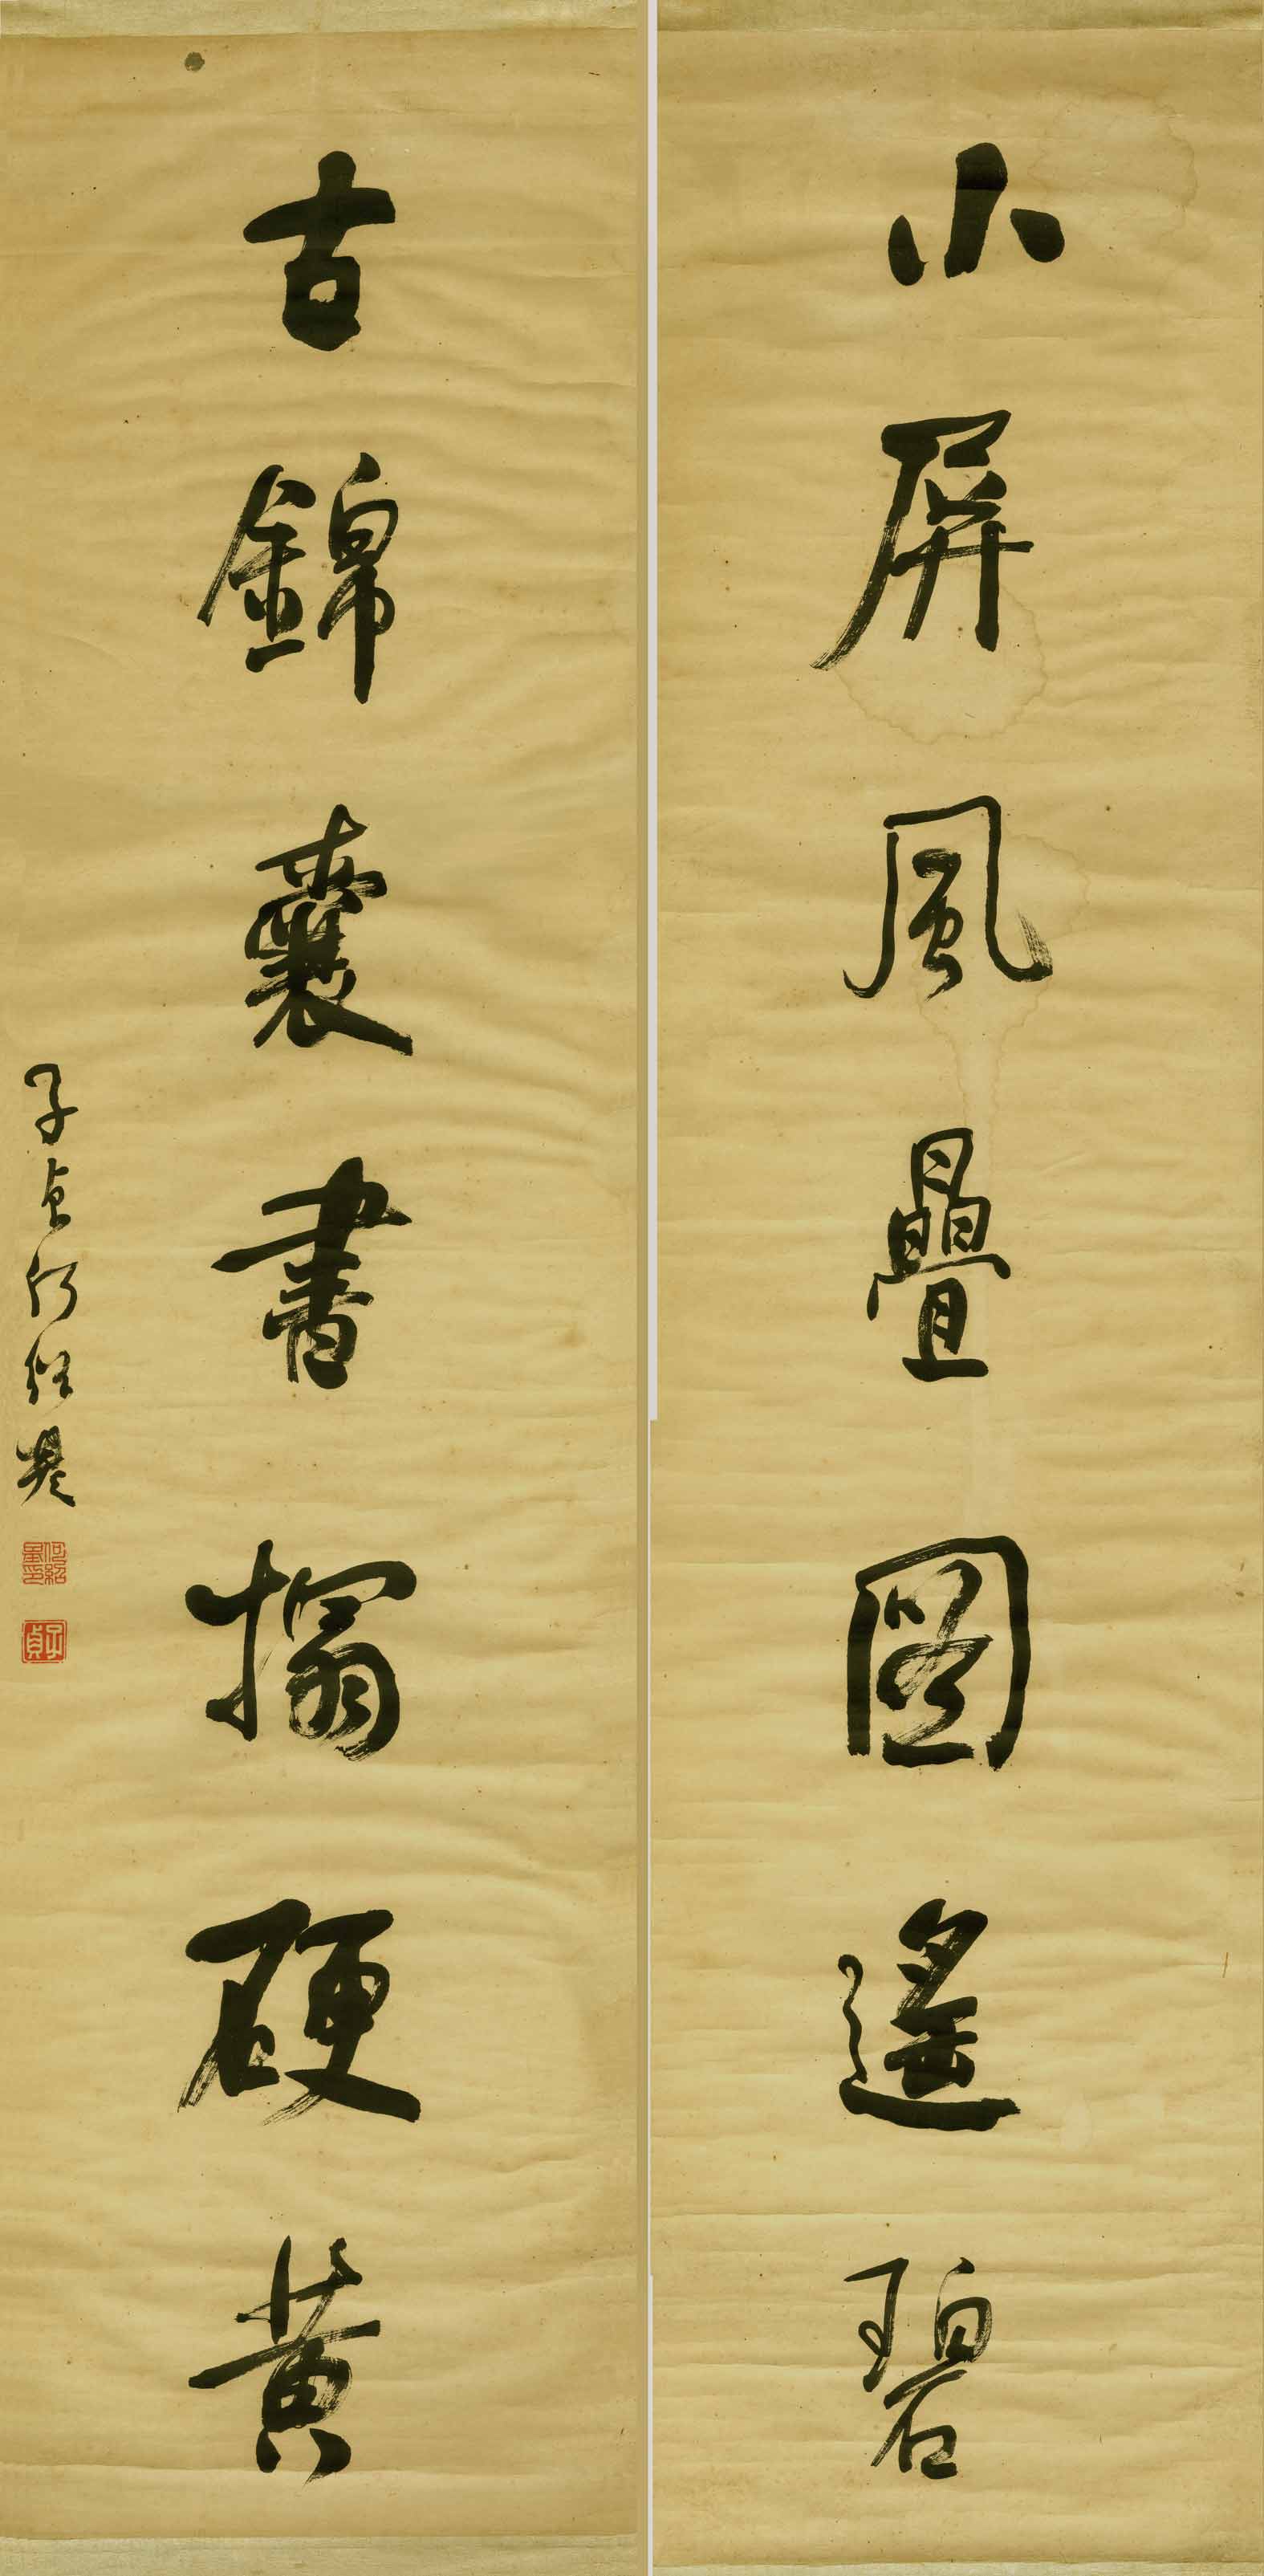 小屏風疊圖遙碧
古錦囊書搨硬黃
子貞何紹基
何紹基印
子貞